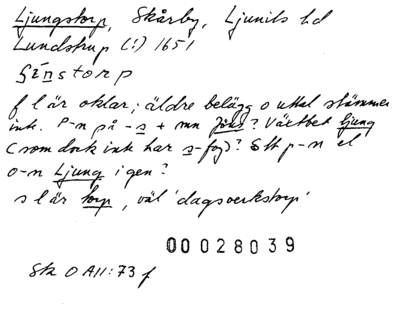 Ljungstorp, Skårby, Ljunits hd
Lundstrup (!) 1651
f l är oklar; äldre belägg o uttal stämmer
ink. P-n på -s + mn Jöns? Växtbet ljung
(som dock ink har s-fog)? Ett p-n el
o-n Ljung i gen?
s l är torp, väl 'dagsverkstorp'
00028039
Sk O A11:73 f